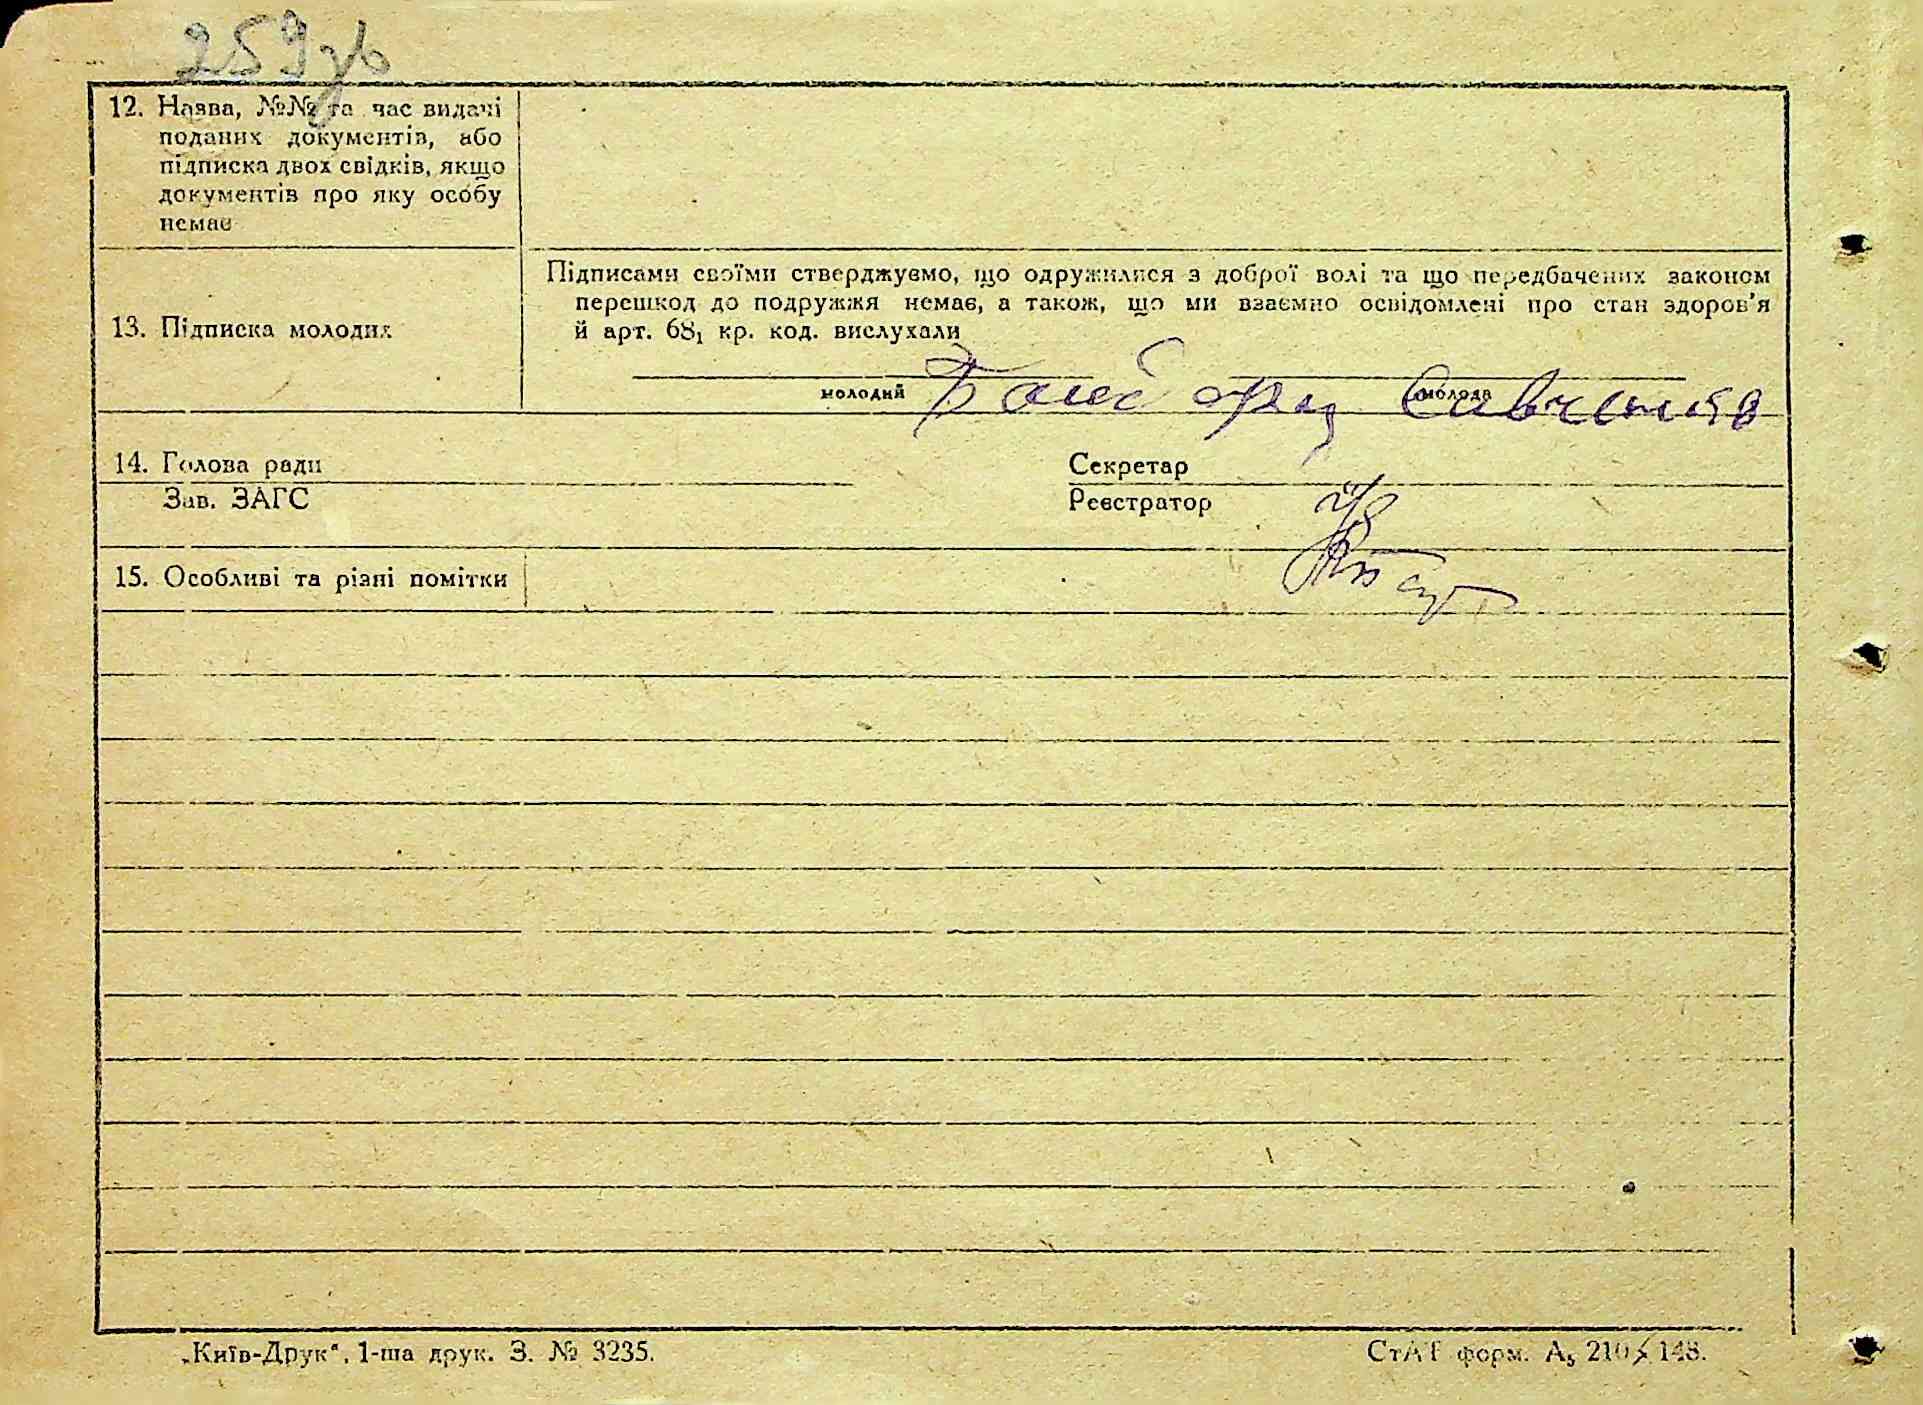 259зв
12. Назва, №№ та час видачі
поданих документів, або
підписка двох свідків, якщо
документів про яку особу
немає
13. Підписка молодих
Підписами своїми стверджуємо, що одружилися з доброї волі та що передбачених законом
перешкод до подружжя немає, а також, що ми взаємно освідомлені про стан здоров'я
й арт. 68₁ кр. код. вислухали
молодий молода
14. Голова ради Секретар
Зав. ЗАГС Реєстратор
15. Особливі та різні помітки
„Київ-Друк“, 1-ша друк. З. № 3235.
СтАТ форм. А₅ 210 × 148.